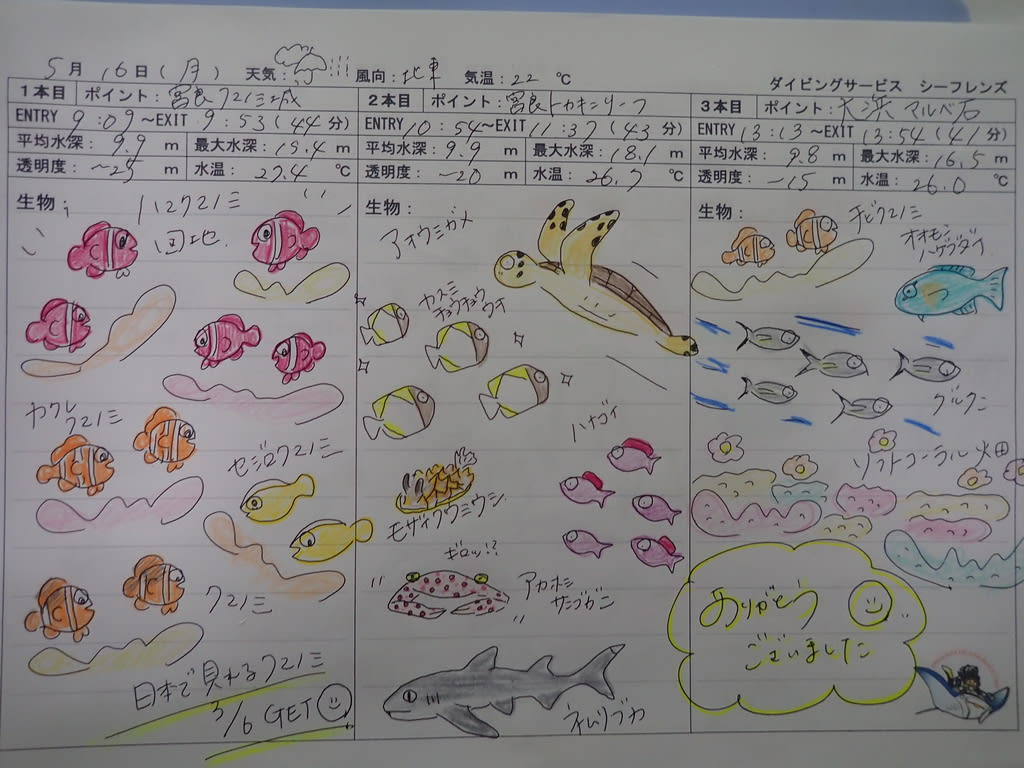 5月 16日(月) 天気: 風向:北東 気温:22 ℃
ダイビングサービス シーフレンズ
1本目 ポイント:宮良クマノミ城
ENTRY 9:09~EXIT 9:53(44分)
平均水深:9.9 m 最大水深:15.4 m
透明度:~25 m 水温:27.4 ℃
生物:
ハマクマノミ
団地
カクレ
クマノミ
セジロクマノミ
クマノミ
日本で見れるクマノミ
3/6 GET
2本目 ポイント:宮良トカキンリーフ
ENTRY 10:54~EXIT 11:37(43分)
平均水深:9.9 m 最大水深:18.1 m
透明度:~20 m 水温:26.7 ℃
生物:
アオウミガメ
カスミ
チョウチョウ
ウオ
ハナゴイ
モザイクウミウシ
ギロッ!?
アカホシ
サンゴガニ
ネムリブカ
3本目 ポイント:大浜 マルベ石
ENTRY 13:13~EXIT 13:54(41分)
平均水深:9.8 m 最大水深:16.5 m
透明度:~15 m 水温:26.0 ℃
生物:
チビクマノミ
オオモン
ハゲブダイ
グルクン
ソフトコーラル畑
ありがとう
ございました